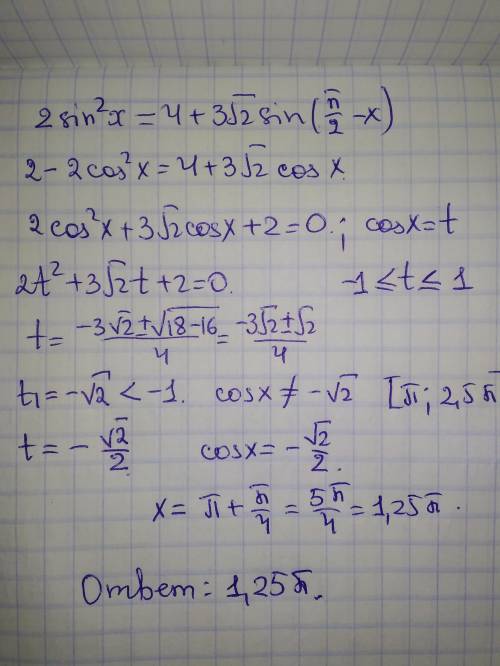 2sin²x = 4 + 3√2 sin(π/2 - x)
2 - 2cos²x = 4 + 3√2 cos x.
2cos²x + 3√2cosx + 2 = 0. ; cosx = t
2t² + 3√2t + 2 = 0. -1 ≤ t ≤ 1
t = (-3√2 ± √(18-16))/4 = (-3√2 ± √2)/4
t₁ = -√2 < -1. cosx ≠ -√2 [π; 2,5π
t = -√2/2. cosx = -√2/2.
x = π + π/4 = 5π/4 = 1,25π.
Ответ: 1,25π.